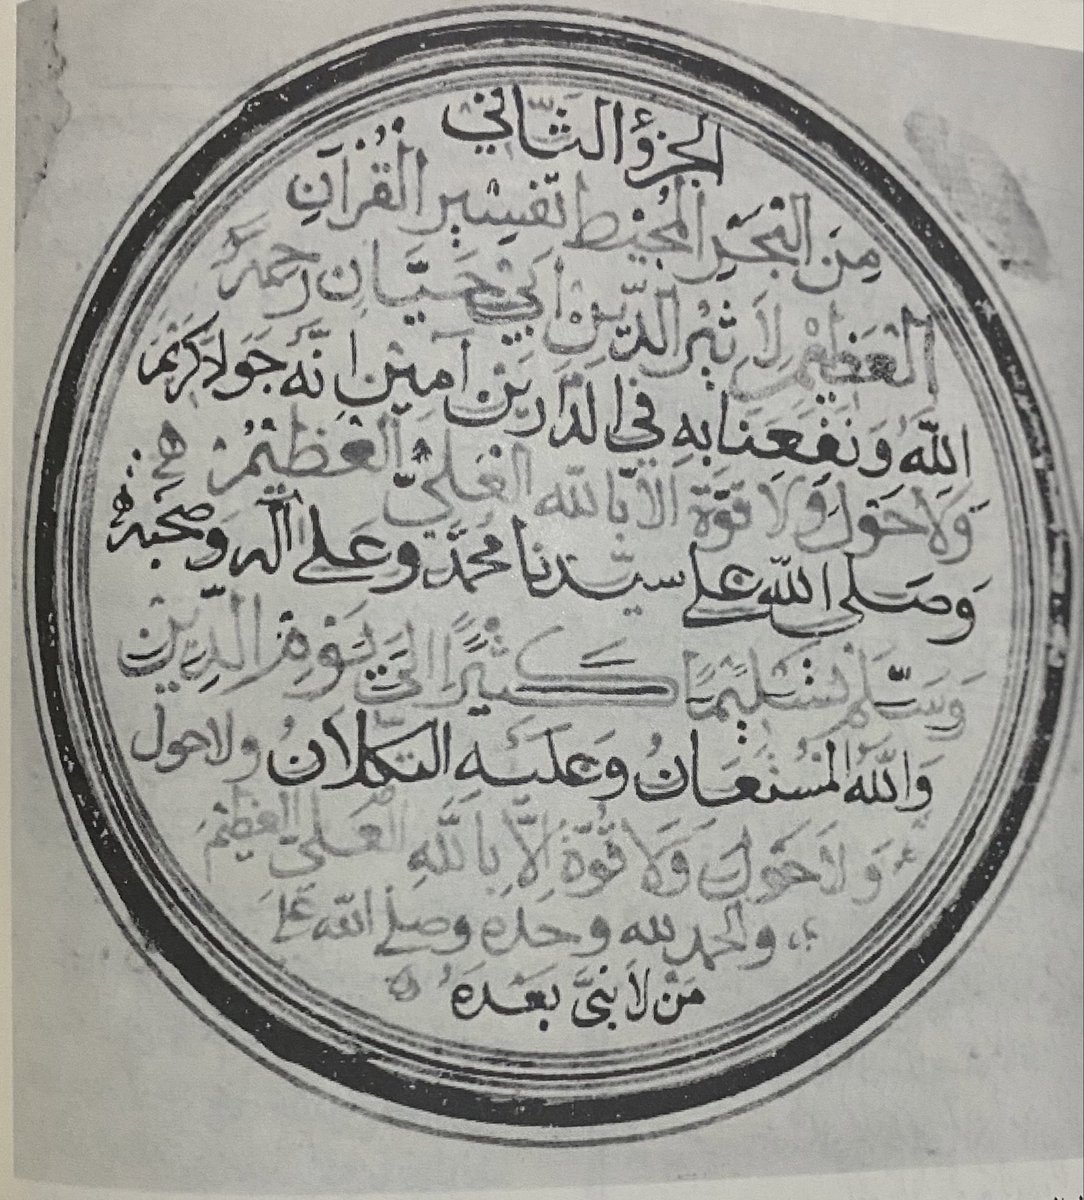 الجزؤ الثاني
مِنَ البَحرِ المُحِيطِ تفسِيرِ القُرآنِ
العَظِيمِ لأَثِيرِ الدِّينِ ابي حَيَّانٍ رحمهُ
اللهُ وَنَفَعَنَا بِهِ في الدَّارَيْنِ آمِينَ إِنَّهُ جَوادٌ كَرِيمٌ
وَلاَ حَوْلَ وَلا قُوَّةَ الاّ باللهِ العَلِيِّ العَظِيمُ
وَصَلى اللهُ على سيدنا محمّد وعلى آله وصحبه
وَسَلَّمَ تَسْلِيمًا كَثِيرًا إلى يَوْمِ الدِّينِ
وَاللهُ المُسْتَعَانُ وَعَلَيْهِ التكلانُ ولا حول
وَلاَ حَوْلَ وَلاَ قُوَّةَ إِلاَّ بِاللهِ العَلِيِّ العَظِيمِ
والحمد لله وحده وصلى الله على
مَنْ لاَ نَبِيَّ بَعْدَهُ